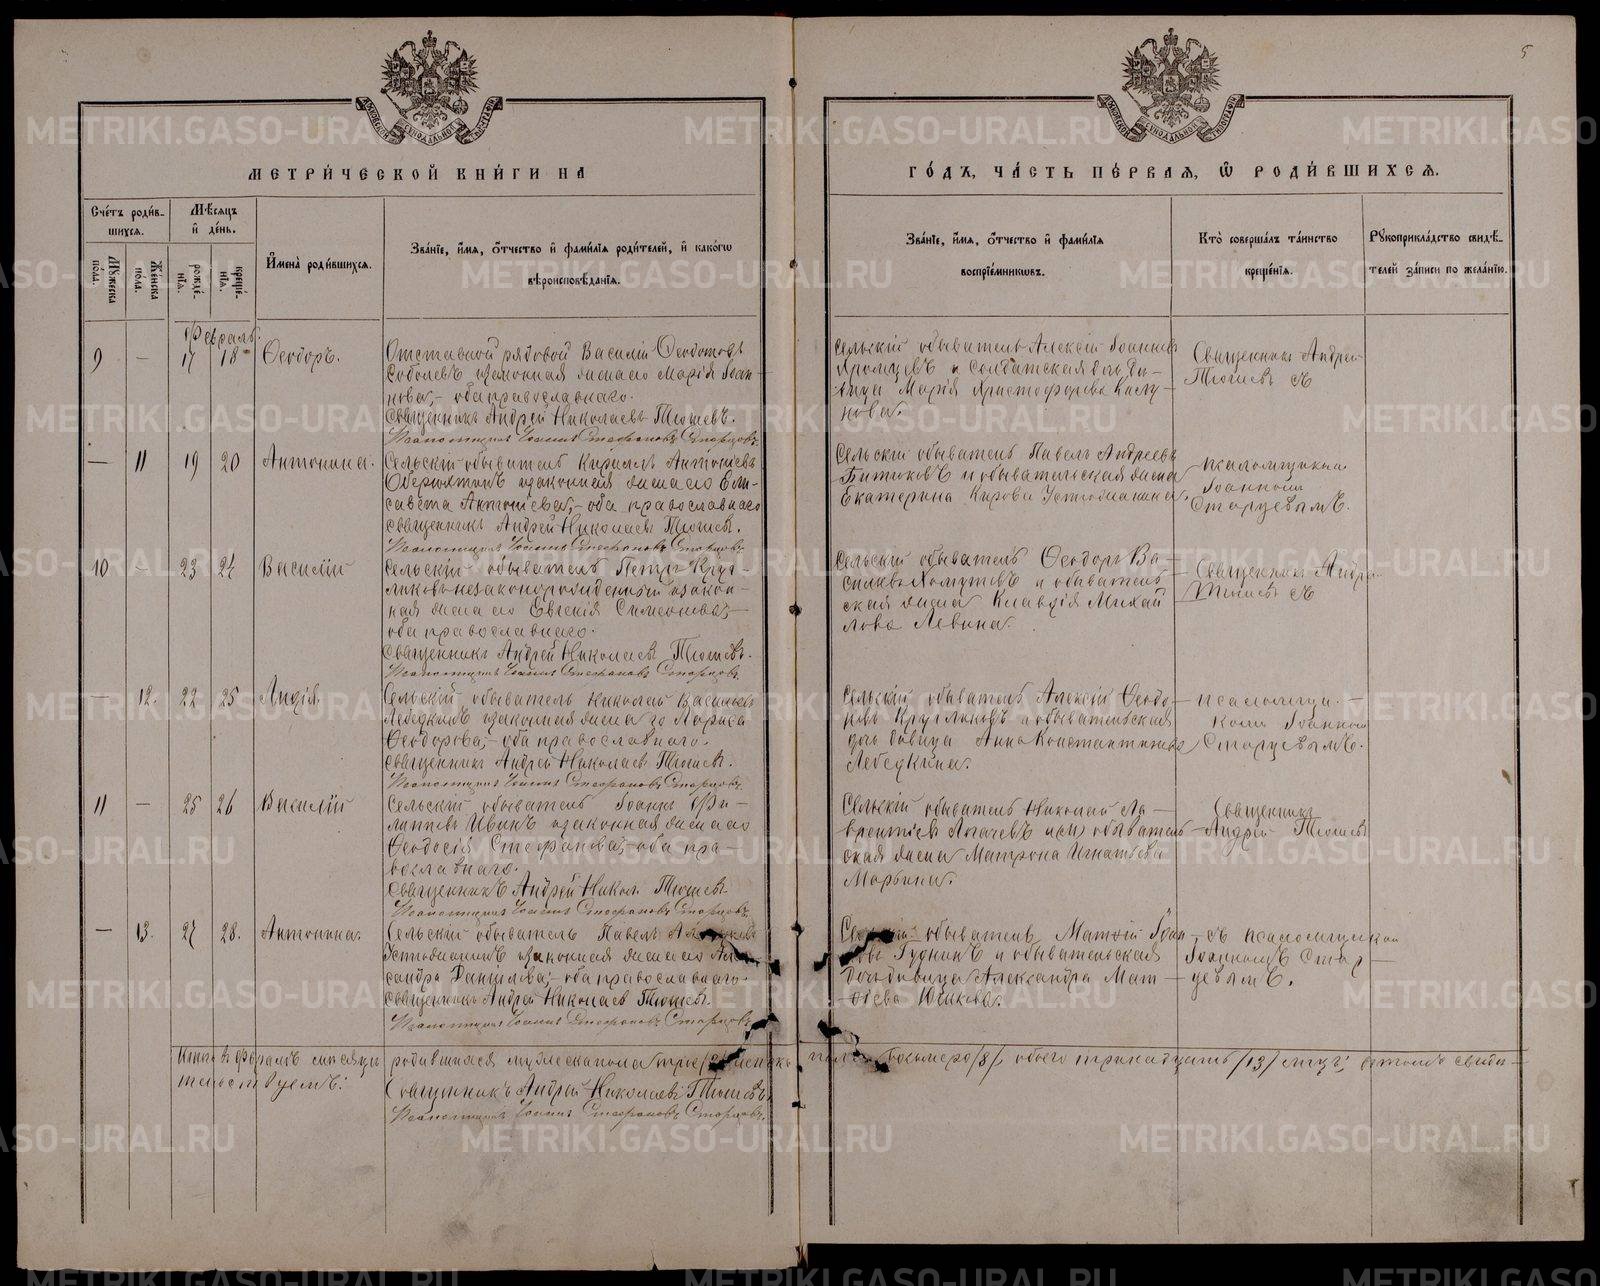 5
МЕТРИ́ЧЕСКОЙ КНИ́ГИ НА
ГО́ДЪ, ЧА́СТЬ ПЕ́РВАЯ, Ѡ РОДИ́ВШИХСЯ.
Сче́тъ роди́вшихся.
Мѣ́сяцъ и де́нь.
Мꙋ́жеска по́ла.
Же́нска по́ла.
рожде́нїѧ.
креще́нїѧ.
Имена̀ роди́вшихся.
Зва́нїе, и́мѧ, о́тчество и фами́лїѧ роди́телей, и како́гѡ
вѣроисповѣ́данїѧ.
Зва́нїе, и́мѧ, о́тчество и фами́лїѧ
воспрїе́мникѡвъ.
Кто̀ соверша́лъ та́инство
креще́нїѧ.
Рꙋкоприкла́дство свидѣ́-
телей за́писи по жела́нїю.
Февраль.
9 — 17 18 Ѳеодоръ.
Отставной рядовой Василій Ѳедотовъ
Соболевъ и законная жена его Марія Іоан-
нова, — оба православнаго.
Священникъ Андрей Николаевъ
Псаломщикъ Іоаннъ Стефановъ Старцовъ.
Сельскій обыватель Алексій Іоанновъ
и солдатская дочь дѣ-
вица Марія Христофорова
нова.
Священникъ Андрей
— 11 19 20 Антонина.
Сельскій обыватель Кириллъ Антоніевъ
и законная жена его Ели-
савета Антоніева, — оба православнаго
Священникъ Андрей Николаевъ
Псаломщикъ Іоаннъ Стефановъ Старцовъ.
Сельскій обыватель Павелъ Андреевъ
и обывательская жена
Екатерина Кирова Устюжанина.
псаломщикъ
Іоанномъ
Старцевымъ.
10 — 23 24 Василій
Сельскій обыватель Петръ Круг-
ликовъ незаконнорожденный и закон-
ная жена его Евгенія Симеонова, —
оба православнаго.
Священникъ Андрей Николаевъ
Псаломщикъ Іоаннъ Стефановъ Старцовъ.
Сельскій обыватель Ѳеодоръ Ва-
сильевъ Хомутовъ и обыватель-
ская жена Клавдія Михай
лова Левина.
Священникъ Андрей
— 12. 22 25 Лидія.
Сельскій обыватель Николай Васильевъ
Лебедкинъ и законная жена его Лариса
Ѳеодорова, — оба православнаго.
Священникъ Андрей Николаевъ
Псаломщикъ Іоаннъ Стефановъ Старцовъ.
Сельскій обыватель Алексій Ѳеодо-
ровъ Кругликовъ и обывательская
дочь девица Анна Константинова
Лебедкина.
псаломщи-
комъ Іоанномъ
Старцевымъ.
11 — 25 26 Василій
Сельскій обыватель Іоаннъ Фи-
липповъ Ивинъ и законная жена его
Ѳеодосія Стефанова, — оба пра-
вославнаго.
Священникъ Андрей Никол.
Псаломщикъ Іоаннъ Стефановъ Старцовъ.
Сельскій обыватель Николай Ла-
врентіевъ и обыватель
ская жена Матрона Игнатьева
Марьина.
Священникъ
Андрей
— 13. 27 28. Антонина.
Сельскій обыватель Павелъ
Устюжанинъ и законная жена его Алек-
сандра Данилова, оба православнаго.
Священникъ Андрей Николаевъ
Псаломщикъ Іоаннъ Стефановъ Старцовъ.
Сельскій обыватель Матѳій Іоан-
новъ и обывательская
дочь девица Александра Мат-
ѳіева Юшкова.
съ псаломщикомъ
Іоанномъ Стар-
цевымъ.
Итого въ февралѣ мѣсяцѣ родившихся мужеска пола женска пола восьмеро /8/, обоего тринадцать /13/ лицъ; въ томъ свидѣ-
тельствуемъ:
Священникъ Андрей Николаевъ
Псаломщикъ Іоаннъ Стефановъ Старцовъ.